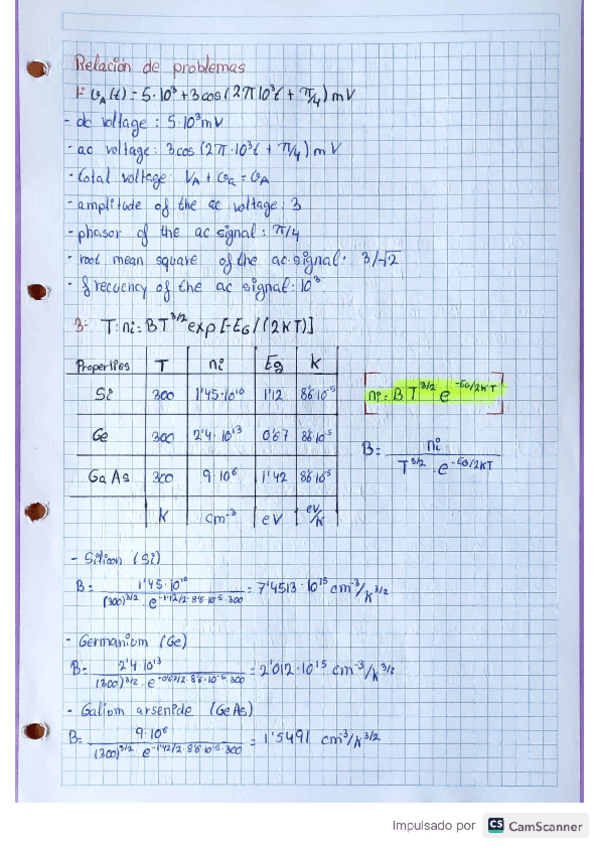 Relación de problemas
1: υA(t) = 5·10³ + 3cos(2π10³t + π/4) mV
- dc voltage: 5·10³mV
- ac voltage: 3cos(2π·10³t + π/4) mV
- total voltage: VA + υa = υA
- amplitude of the ac voltage: 3
- phasor of the ac signal: π/4
- root mean square of the ac signal: 3/√2
- frecuency of the ac signal: 10³
3: T: ni = BT^3/2 exp[-EG/(2KT)]
Properties T ni Eg K
Si 300 1'45·10¹⁰ 1'12 8'6·10⁻⁵
ni = B T^3/2 e^-EG/2KT
Ge 300 2'4·10¹³ 0'67 8'6·10⁻⁵
B = ni / T^3/2 · e^-EG/2KT
GaAs 300 9·10⁶ 1'42 8'6·10⁻⁵
K cm⁻³ eV eV/K
- Silicon (Si)
B = 1'45·10¹⁰ / (300)^3/2 · e^-1'12/2·8'6·10⁻⁵·300 = 7'4513·10¹⁵ cm⁻³/K^3/2
- Germanium (Ge)
B = 2'4·10¹³ / (300)^3/2 · e^-0'67/2·8'6·10⁻⁵·300 = 2'012·10¹⁵ cm⁻³/K^3/2
- Galium arsenide (GeAs)
B = 9·10⁶ / (300)^3/2 · e^-1'42/2·8'6·10⁻⁵·300 = 1'5491 cm⁻³/K^3/2
Impulsado por CS CamScanner